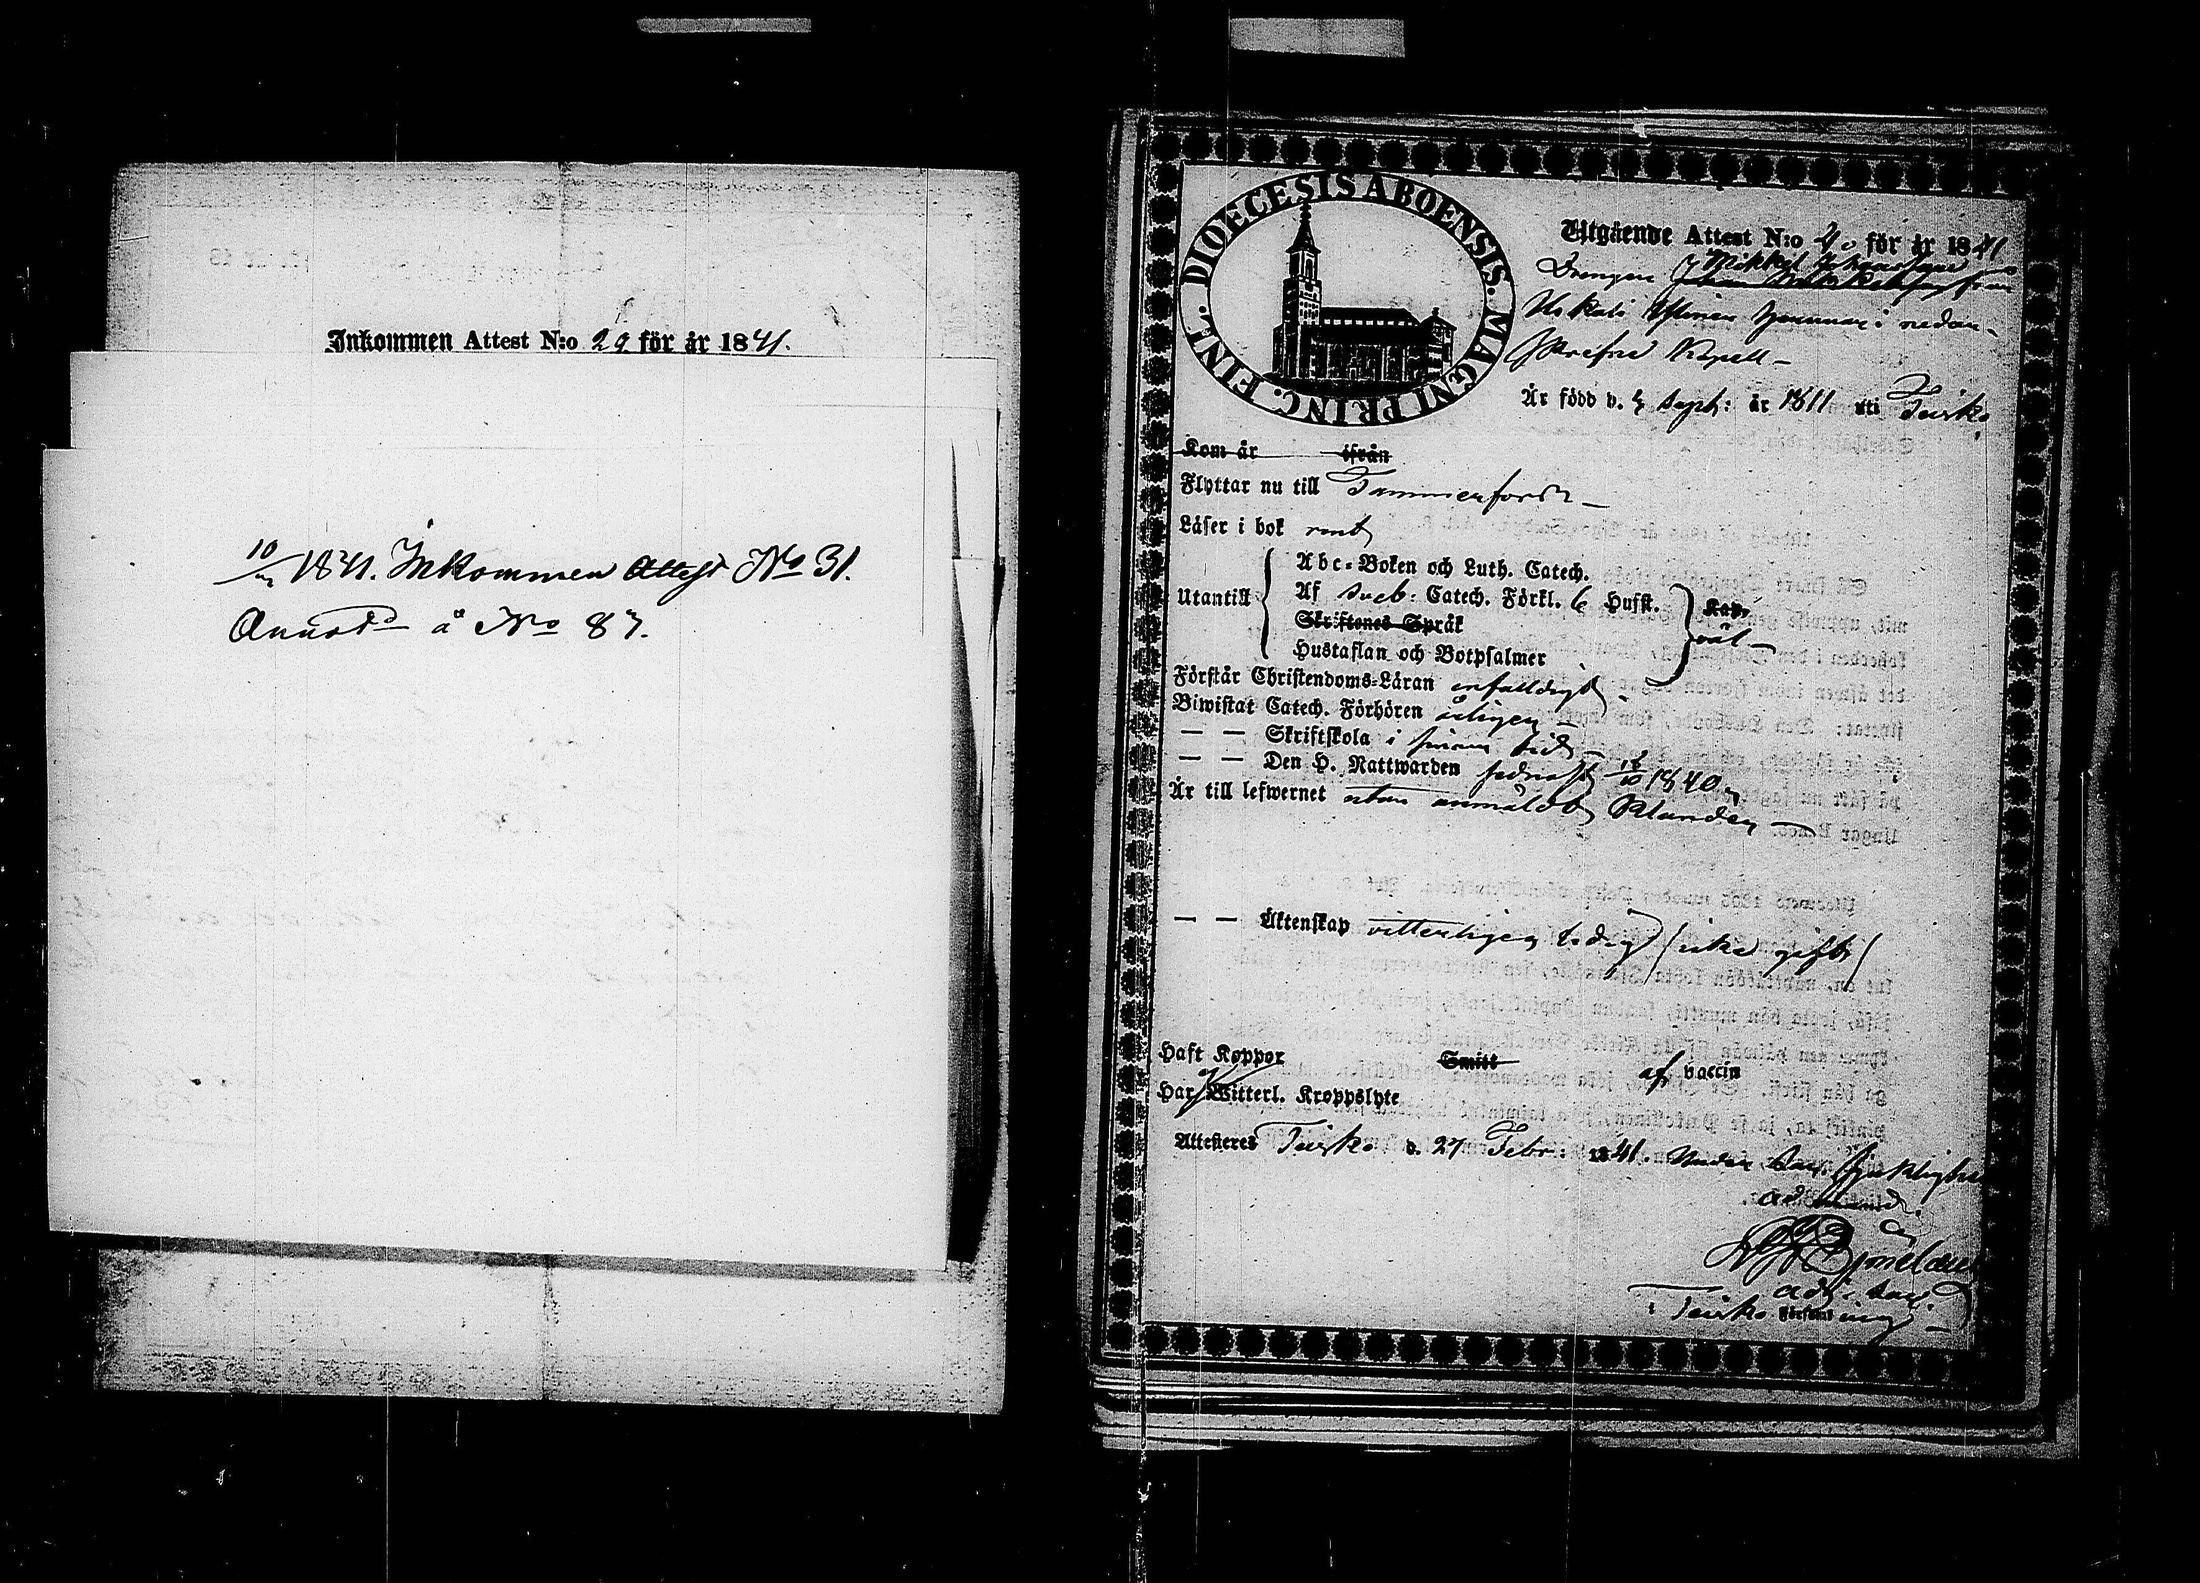 Inkommen Attest N:o 29 för år 1841.
10/ 1841. Inkommen Attest No 31.
Annotd å No 87.
DIOECESIS ABOENSIS. MAGNI PRINC. FINL.
Utgående Attest N:o för år 1841
Drengen Mikkel från
Uskali Hemman i nedan-
skrefne Kapell —
Är född d. Sept: år 1811 uti Teisko
Kom år ifrån
Flyttar nu till Tammerfors —
Läser i bok rent
Utantill
Abc-Boken och Luth. Catech.
Af Sveb: Catech. Förkl. 6 Hufst.
Skriftenes Språk
Hustaflan och Botpsalmer
Kap.
väl —
Förstår Christendoms-Läran enfaldigt —
Biwistat Catech. Förhören årligen —
— — Skriftskola i sinom tid —
— — Den H. Nattwarden sednast 1840
Är till lefwernet utan anmäldt klander —
— — Äktenskap vitterligen ledig (icke gift)
Haft Koppor Smitt af vaccin
Har Witterl. Kroppslyte
Attesteres Teisko d. 27 Febr: 1841. Under
adj: Sac.
i Teisko Församling —